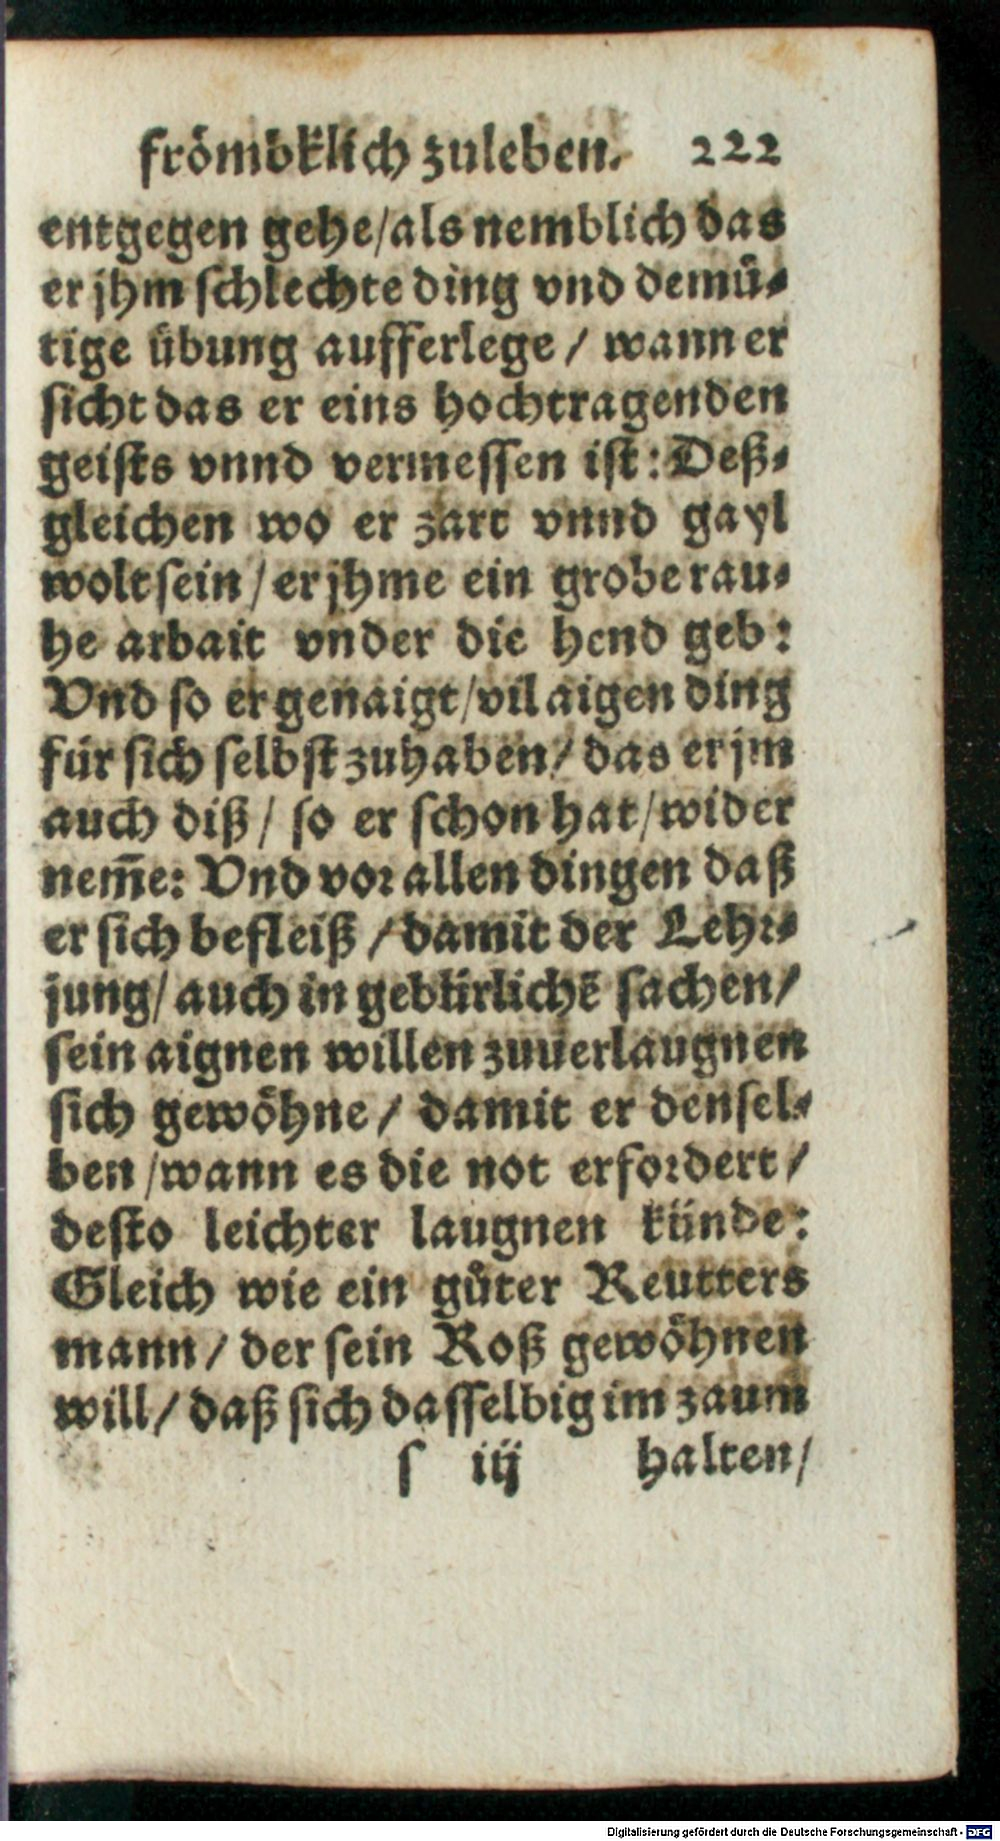 frömbklich zuleben. 222
entgegen gehe/als nemblich das
er jhm schlechte ding vnd demü⸗
tige übung aufferlege / wann er
sicht das er eins hochtragenden
geists vnnd vermessen ist: Deß⸗
gleichen wo er zart vnnd gayl
wolt sein / er jhme ein grobe rau⸗
he arbait vnder die hend geb:
Vnd so er genaigt/vil aigen ding
für sich selbst zuhaben/ das er jm
auch diß/ so er schon hat/wider
nem̃e: Vnd vor allen dingen daß
er sich befleiß / damit der Lehr⸗
jung/ auch in gebürlichẽ sachen/
sein aignen willen zuuerlaugnen
sich gewöhne/ damit er densel⸗
ben /wann es die not erfordert/
desto leichter laugnen künde:
Gleich wie ein gůter Reutters
mann/ der sein Roß gewöhnen
will/ daß sich dasselbig im zaum
s iij halten/
Digitalisierung gefördert durch die Deutsche Forschungsgemeinschaft - DFG